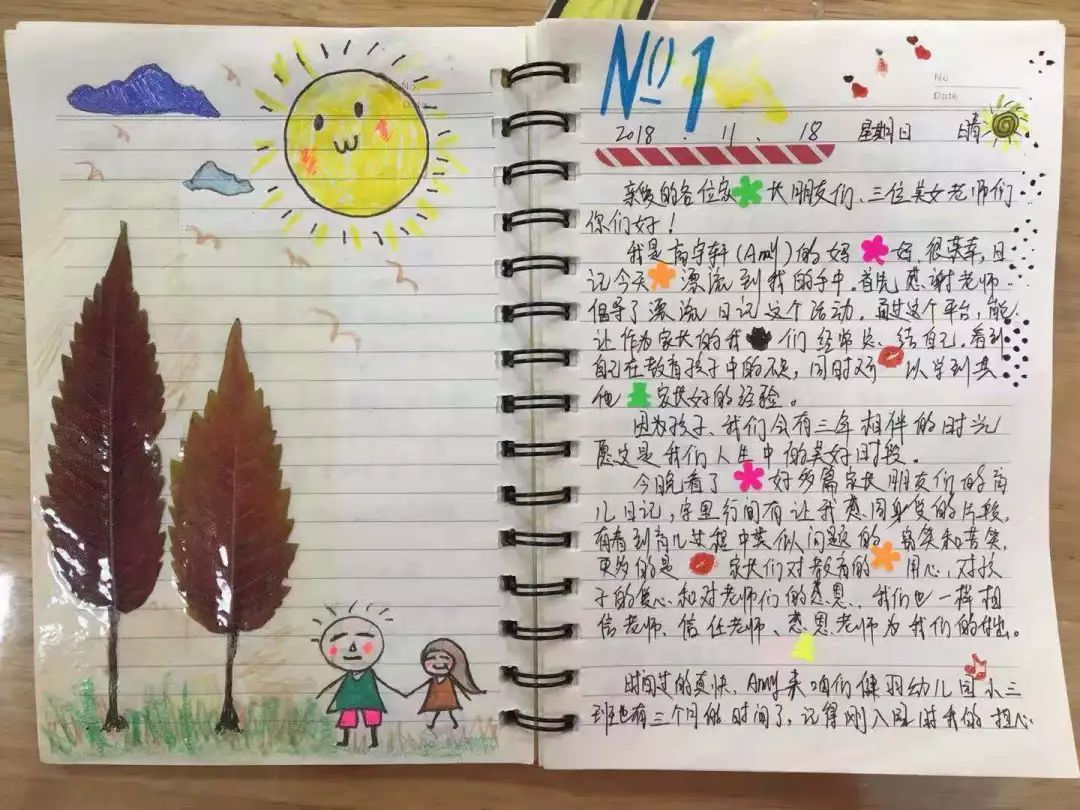 No1
No
Date
2018 . 11 . 18 星期日 晴
亲爱的各位家长朋友们、三位美女老师们
你们好!
我是高宇轩(Amy)的妈妈,很荣幸,日
记今天漂流到我的手中。首先感谢老师
倡导了漂流日记这个活动。通过这个平台,能
让作为家长的我们经常总结自己,看到
自己在教育孩子中的不足,同时可以学到其
他家长好的经验。
因为孩子、我们会有三年相伴的时光,
愿这是我们人生中的美好时段。
今晚看了好多篇家长朋友们的育
儿日记,字里行间有让我感同身受的片段,
有看到育儿过程中类似问题的 笑和苦笑,
更多的是家长们对教育的用心,对孩
子的爱心和对老师们的感恩,我们也一样相
信老师、信任老师、感恩老师为我们的付出。
时间过的真快,Amy来咱们 幼儿园小三
班也有三个月的时间了,记得刚入园时我的担心